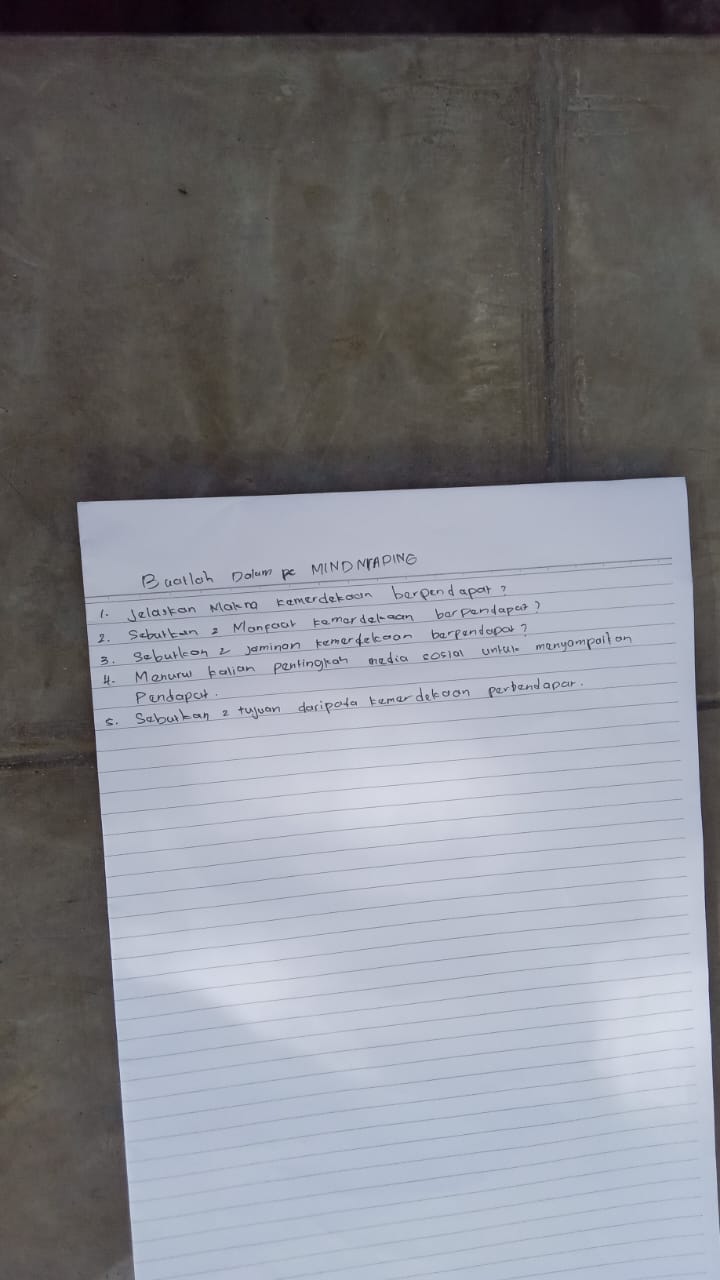 Buatlah Dalam MINDMAPING
1. Jelaskan Makna kemerdekaan berpendapat?
2. Sebutkan 2 Manfaat kemerdekaan berpendapat?
3. Sebutkan 2 jaminan kemerdekaan berpendapat?
4. Menurut kalian pentingkah media sosial untuk menyampaikan
Pendapat.
5. Sebutkan 2 tujuan daripada kemerdekaan perbendapat.